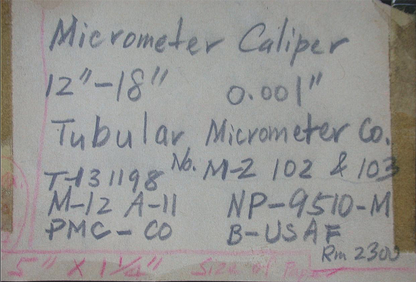 Micrometer Caliper
12"-18" 0.001"
Tubular Micrometer Co.
T-131198 No. M-2 102 & 103
M-12 A-11 NP-9510-M
PMC-CO B-USAF
Rm 2300
5" x 1 1/4" Size of Paper